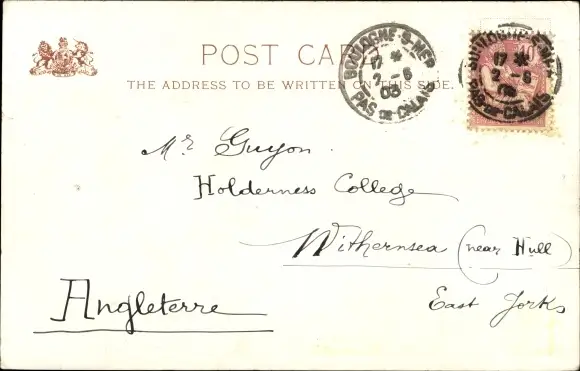 POST CARD
THE ADDRESS TO BE WRITTEN ON THIS SIDE.
BOULOGNE-S-MER
17 *
2-6
03
PAS DE CALAIS
BOULOGNE-S-MER
17 *
2-6
PAS-DE-CALAIS
10
Mr Guyon.
Holderness College
Withernsea (near Hull)
East Yorks
Angleterre